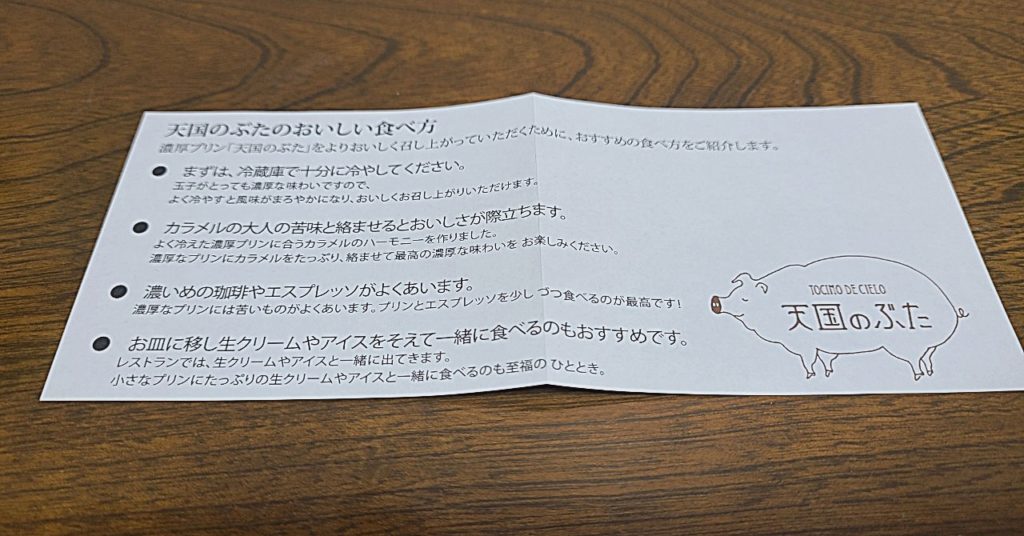 天国のぶたのおいしい食べ方
濃厚プリン「天国のぶた」をよりおいしく召し上がっていただくために、おすすめの食べ方をご紹介します。
● まずは、冷蔵庫で十分に冷やしてください。
玉子がとっても濃厚な味わいですので、
よく冷やすと風味がまろやかになり、おいしくお召し上がりいただけます。
● カラメルの大人の苦味と絡ませるとおいしさが際立ちます。
よく冷えた濃厚プリンに合うカラメルのハーモニーを作りました。
濃厚なプリンにカラメルをたっぷり、絡ませて最高の濃厚な味わいを お楽しみください。
● 濃いめの珈琲やエスプレッソがよくあいます。
濃厚なプリンには苦いものがよくあいます。プリンとエスプレッソを少し づつ食べるのが最高です!
● お皿に移し生クリームやアイスをそえて一緒に食べるのもおすすめです。
レストランでは、生クリームやアイスと一緒に出てきます。
小さなプリンにたっぷりの生クリームやアイスと一緒に食べるのも至福の ひととき。
TOCINO DE CIELO
天国のぶた